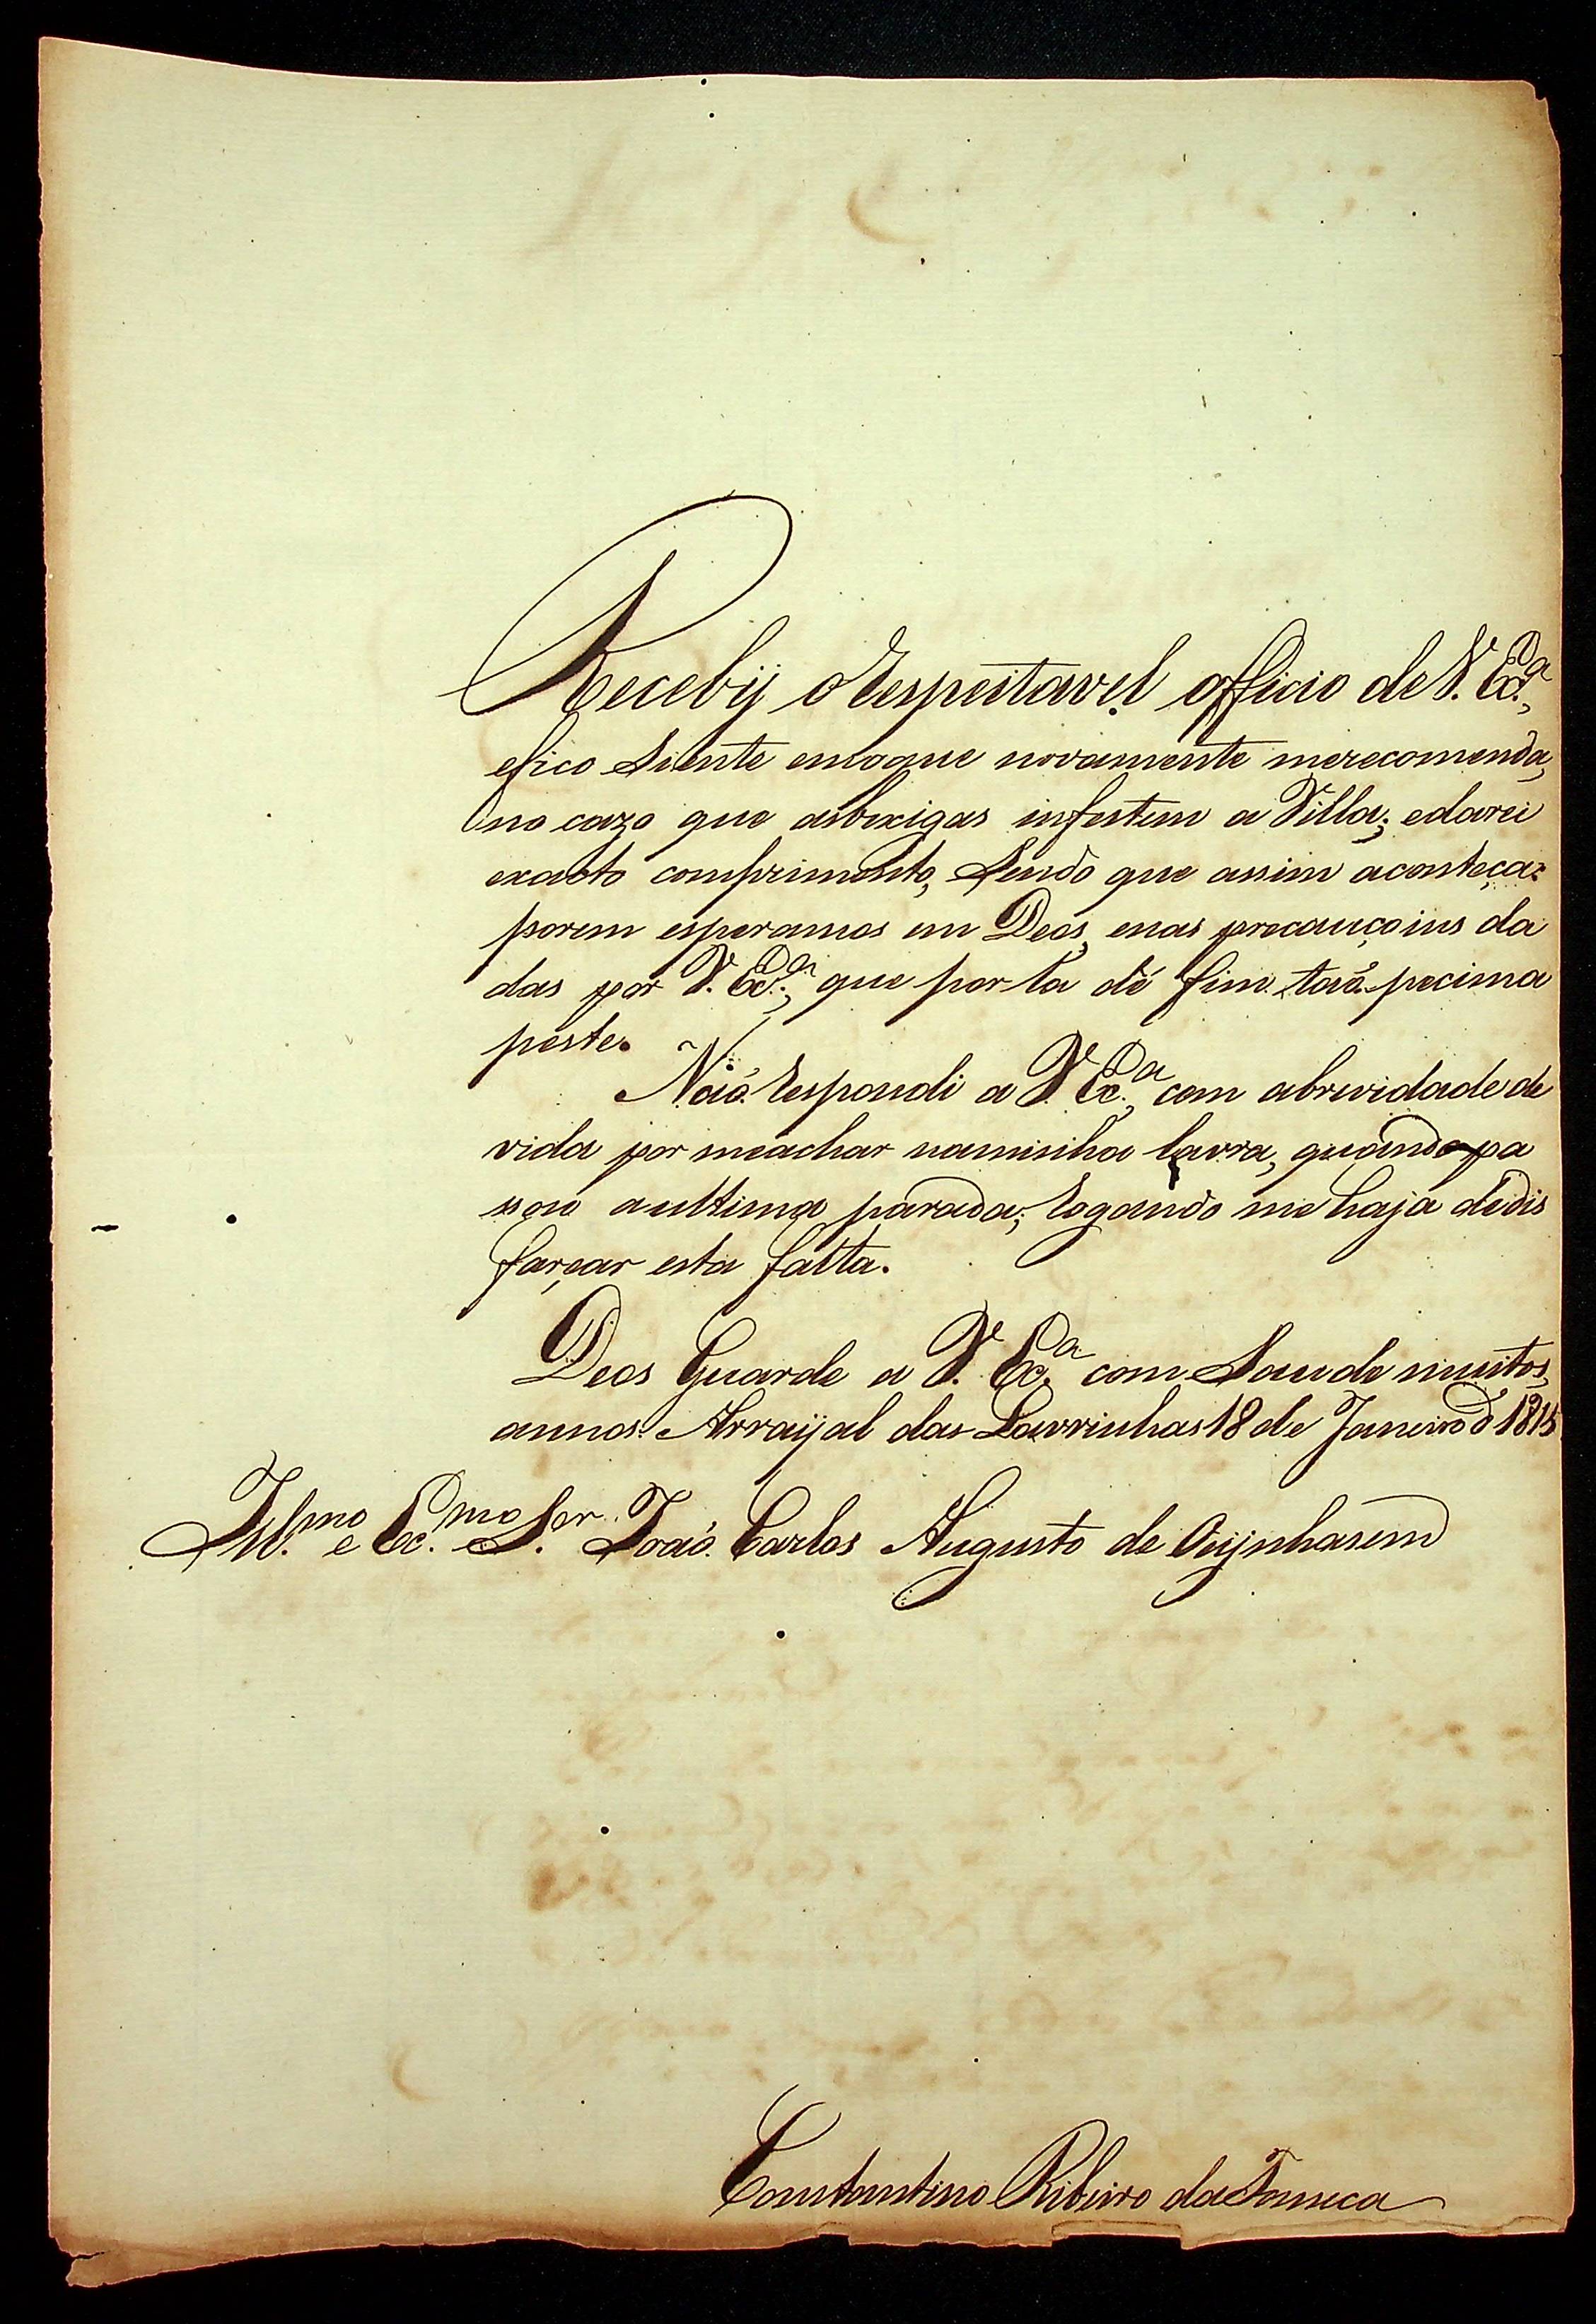 Recebij o Respeitavel officio de V. Exc.ª,
efico Siente emoque novamente merecomenda,
no cazo que asbexigas infestem a Villa; edarei
exacto comprimento, Sendo que assim aconteça:
porem esperamos em Deos, enas precauçoins da
das por V. Exc.ª, que por la dé fim taó pecima
peste.
Naó Respondi a V. Exc.ª, com abrevidade de
vida por meachar naminha lavra, quando pa
sou aultima parada; Rogando me haja dedis
farçar esta falta.
Deos Guarde a V. Exc.ª com Saude muitos
annos. Arraijal das Lavrinhas 18 de Janeiro d' 1815
Ill.mo e Exc.mo Ser. Joaó Carlos Augusto de Oeijnhasem
Constantino Ribeiro da Fonseca